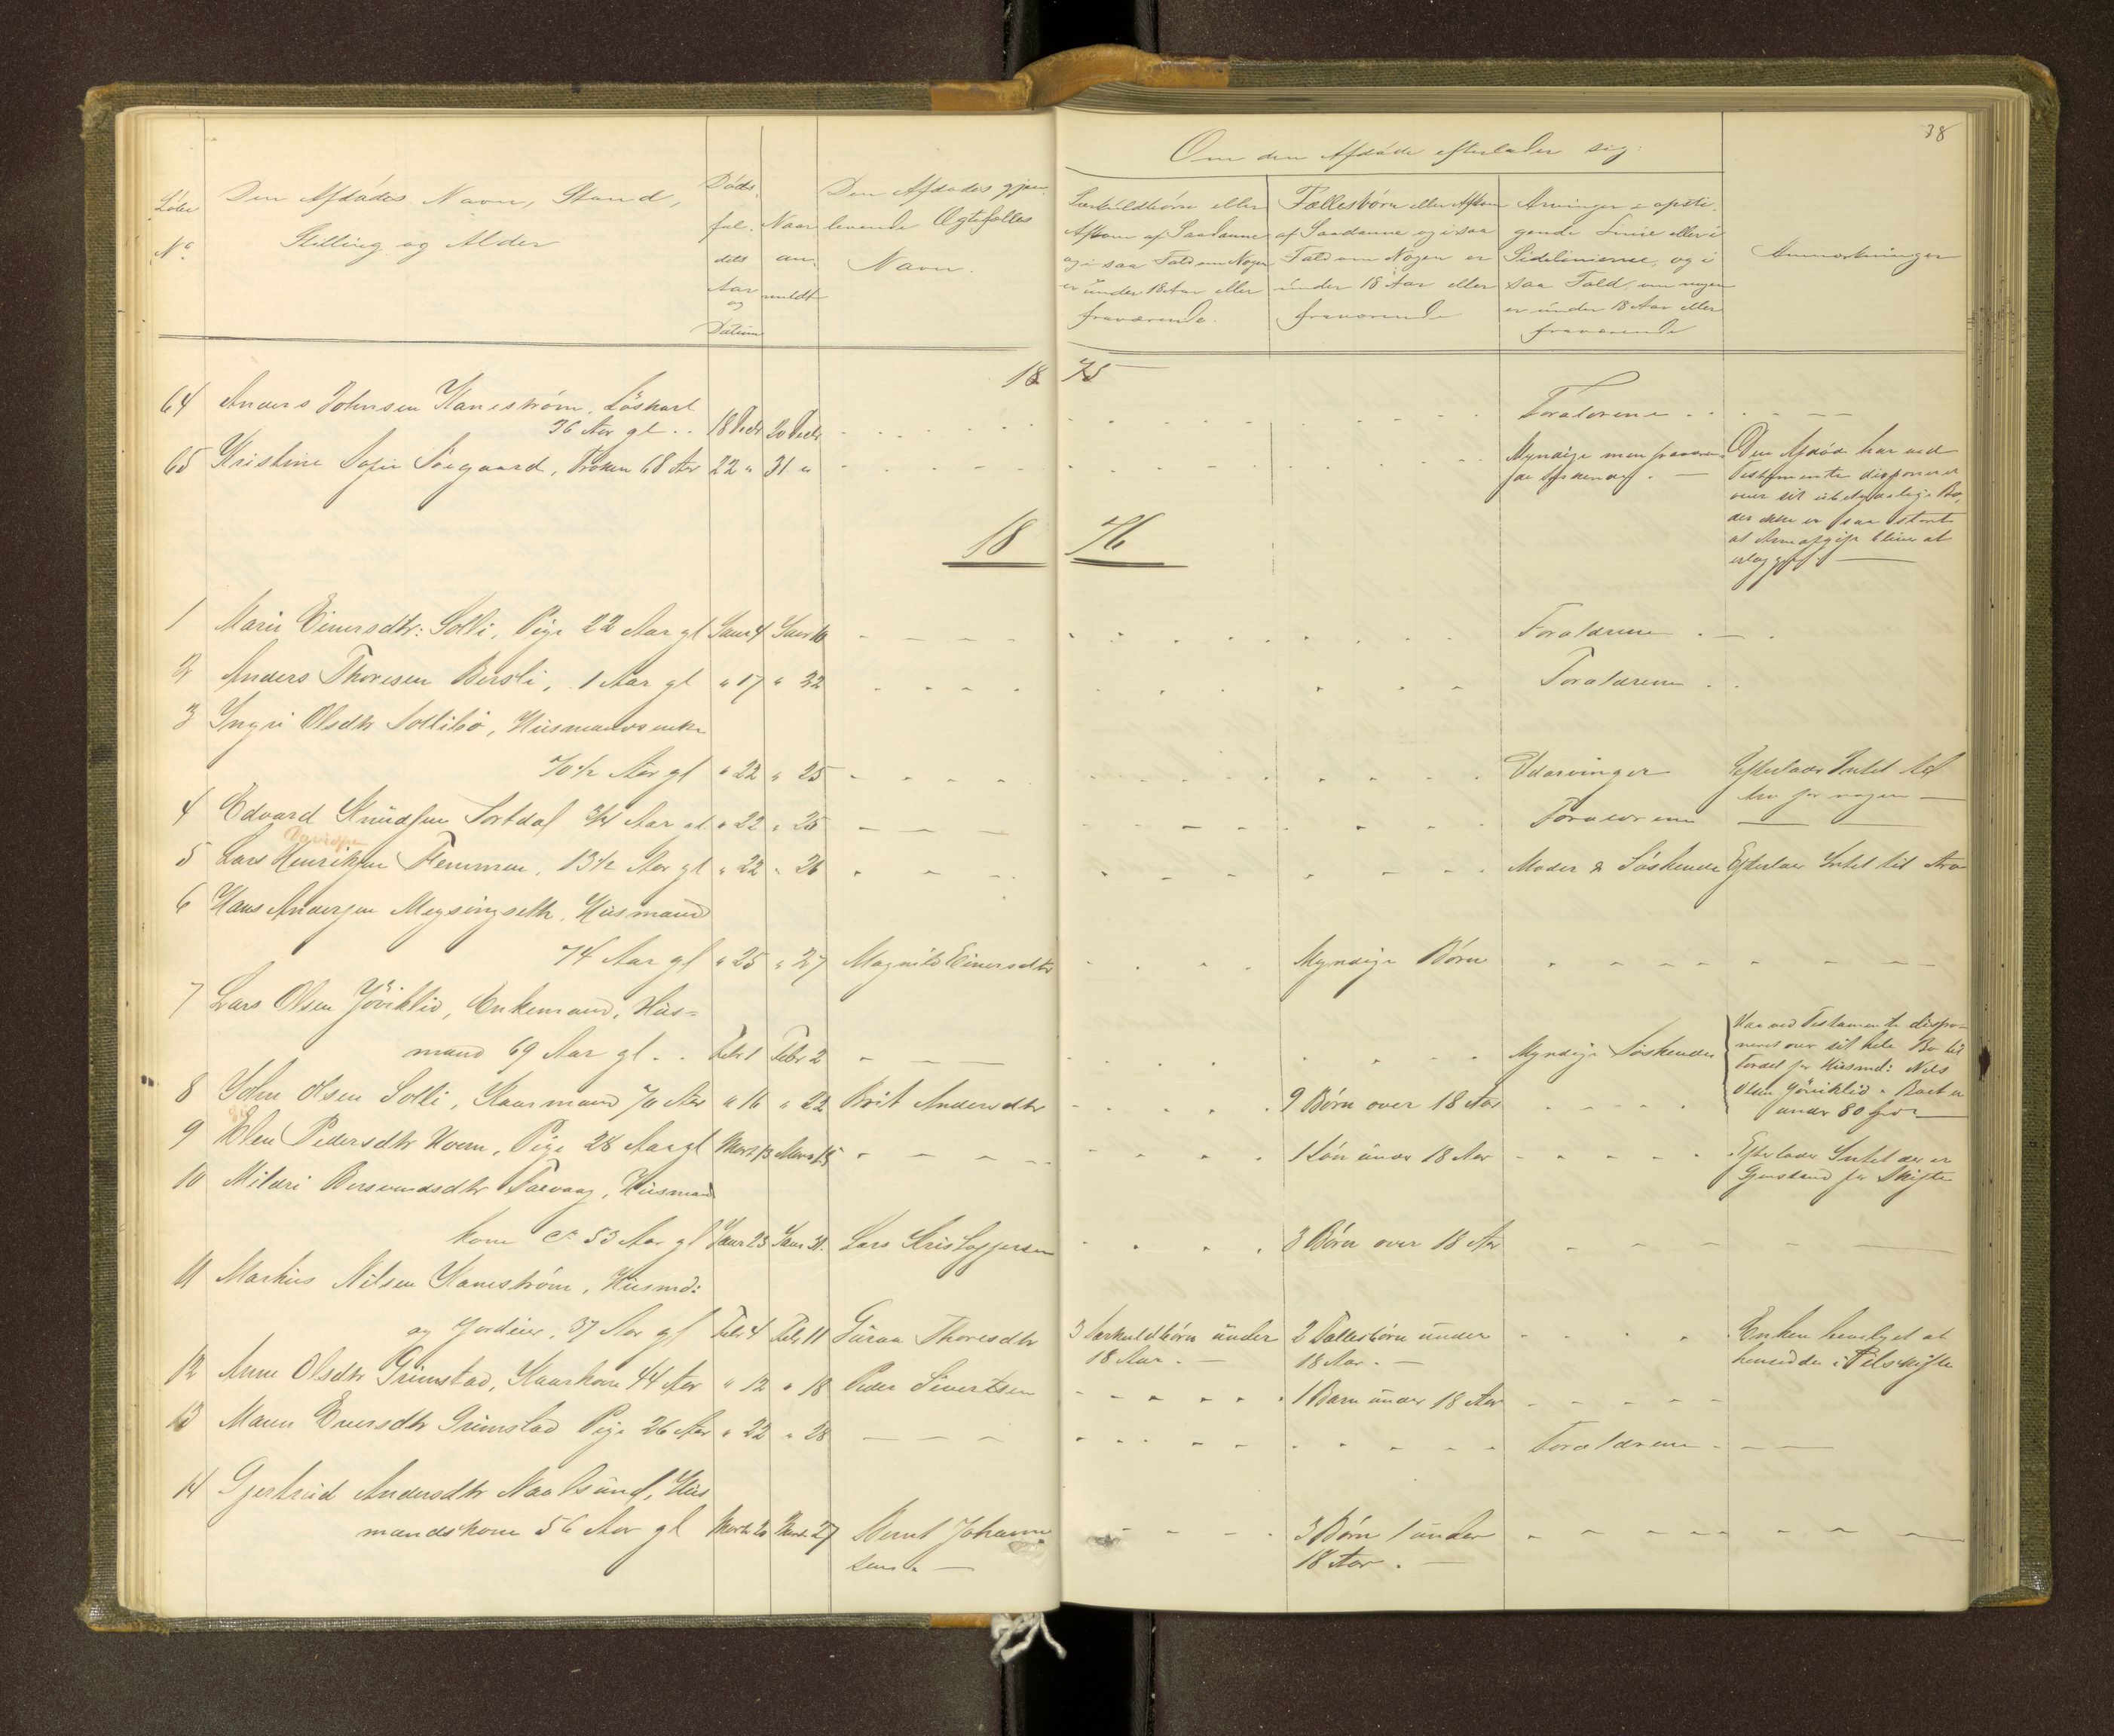 38
Om den Afdøde efterlader sig:
Løbe
No
Den Afdødes Navn, Stand,
Stilling og Alder
Døds
fal-
dets
Aar
og
Datum
Naar
an-
meldt
Den Afdødes gjen-
levende Ægtefælles
Navn.
Særkuldbørn eller
Afkom af Saadanne
og i saa Fald om Nogen
er under 18 Aar eller
fraværende.
Fællesbørn eller Afkom
af Saadanne og i saa
Fald om Nogen er
under 18 Aar eller
fraværende
Arvinger i opsti-
gende Linie eller i
Sidelinierne, og i
saa Fald om nogen
er under 18 Aar eller
fraværende
Anmærkninger
18 75
64 Anders Johnsen Kanestrøm, Løskarl
36 Aar gl. 18 Decbr 20 Decbr Forældrene
65 Kristine Sofie Søegaard, Frøken 68 Aar 22 " 31 "
Myndige men fraværen-
de Søskende.
Den Afdøde har ved
Testamente disponeret
over sit ubetydelige Bo,
der ikke er saa stort
at Arveafgift bliver at
erlægge
18 76
1 Marie Einersdtr: Solli, Pige 22 Aar gl Janr 4 Janr 10 Forældrene
2 Anders Thoresen Bersli, 1 Aar gl " 17 " 22 Forældrene
3 Yngri Olsdtr Sollibø, Husmandsenke
70 1/2 Aar gl " 22 " 25 Udarvinger Efterlader Intet til
Arv for nogen
4 Edvard Knudsen Sortdal 3/4 Aar gl " 22 " 25 Forældrene
Davidsen
5 Lars Henriksen Fennman, 13 1/2 Aar gl " 22 " 26 Moder & Søskende Efterlader Intet til Arv
6 Hans Andersen Meysingseth, Husmand
74 Aar gl " 25 " 27 Magnild Einersdtr Myndige Børn
7 Lars Olsen Jøviklid, Enkemand, Hus-
mand 69 Aar gl. Febr 1 Febr 2 Myndige Søskende
Har ved Testamente dispo-
neret over sit hele Bo til
Fordel for Husmd: Nils
Olsen Jøviklid. Boet er
under 80 spdr
8 John Olsen Solli, Kaarmand 70 Aar " 16 " 22 Brit Andersdtr 9 Børn over 18 Aar
9 Elen Pedersdtr Hoem, Pige 28 Aar gl Marts 13 Marts 15 1 Søn under 18 Aar Efterlader Intet der er
Gjenstand for Skifte
10 Mildri Bersvendsdtr Farvaag, Husmand
kone ca. 53 Aar gl Janr 25 Janr 31. Lars Kristoffersen 3 Børn over 18 Aar
11 Markus Nilsen Kanestrøm, Husmd:
og Jordeier, 37 Aar gl Febr 4 Febr 11 Guroa Thoresdtr 3 Særkuldbørn under 2 Fællesbørn under Enken bevilget at
18 Aar. 18 Aar. hensidde i uskiftet
12 Anne Olsdtr Grimstad, Kaarkone 44 Aar " 12 " 18 Peder Sivertsen 1 Barn under 18 Aar
13 Maren Eversdtr Grimstad Pige 26 Aar " 22 " 28 Forældrene
14 Gjertrud Andersdtr Naalsund, Hus
mandskone 56 Aar gl Marts 20 Marts 27 Bernt Johann 3 Børn 1 under
sen. 18 Aar.